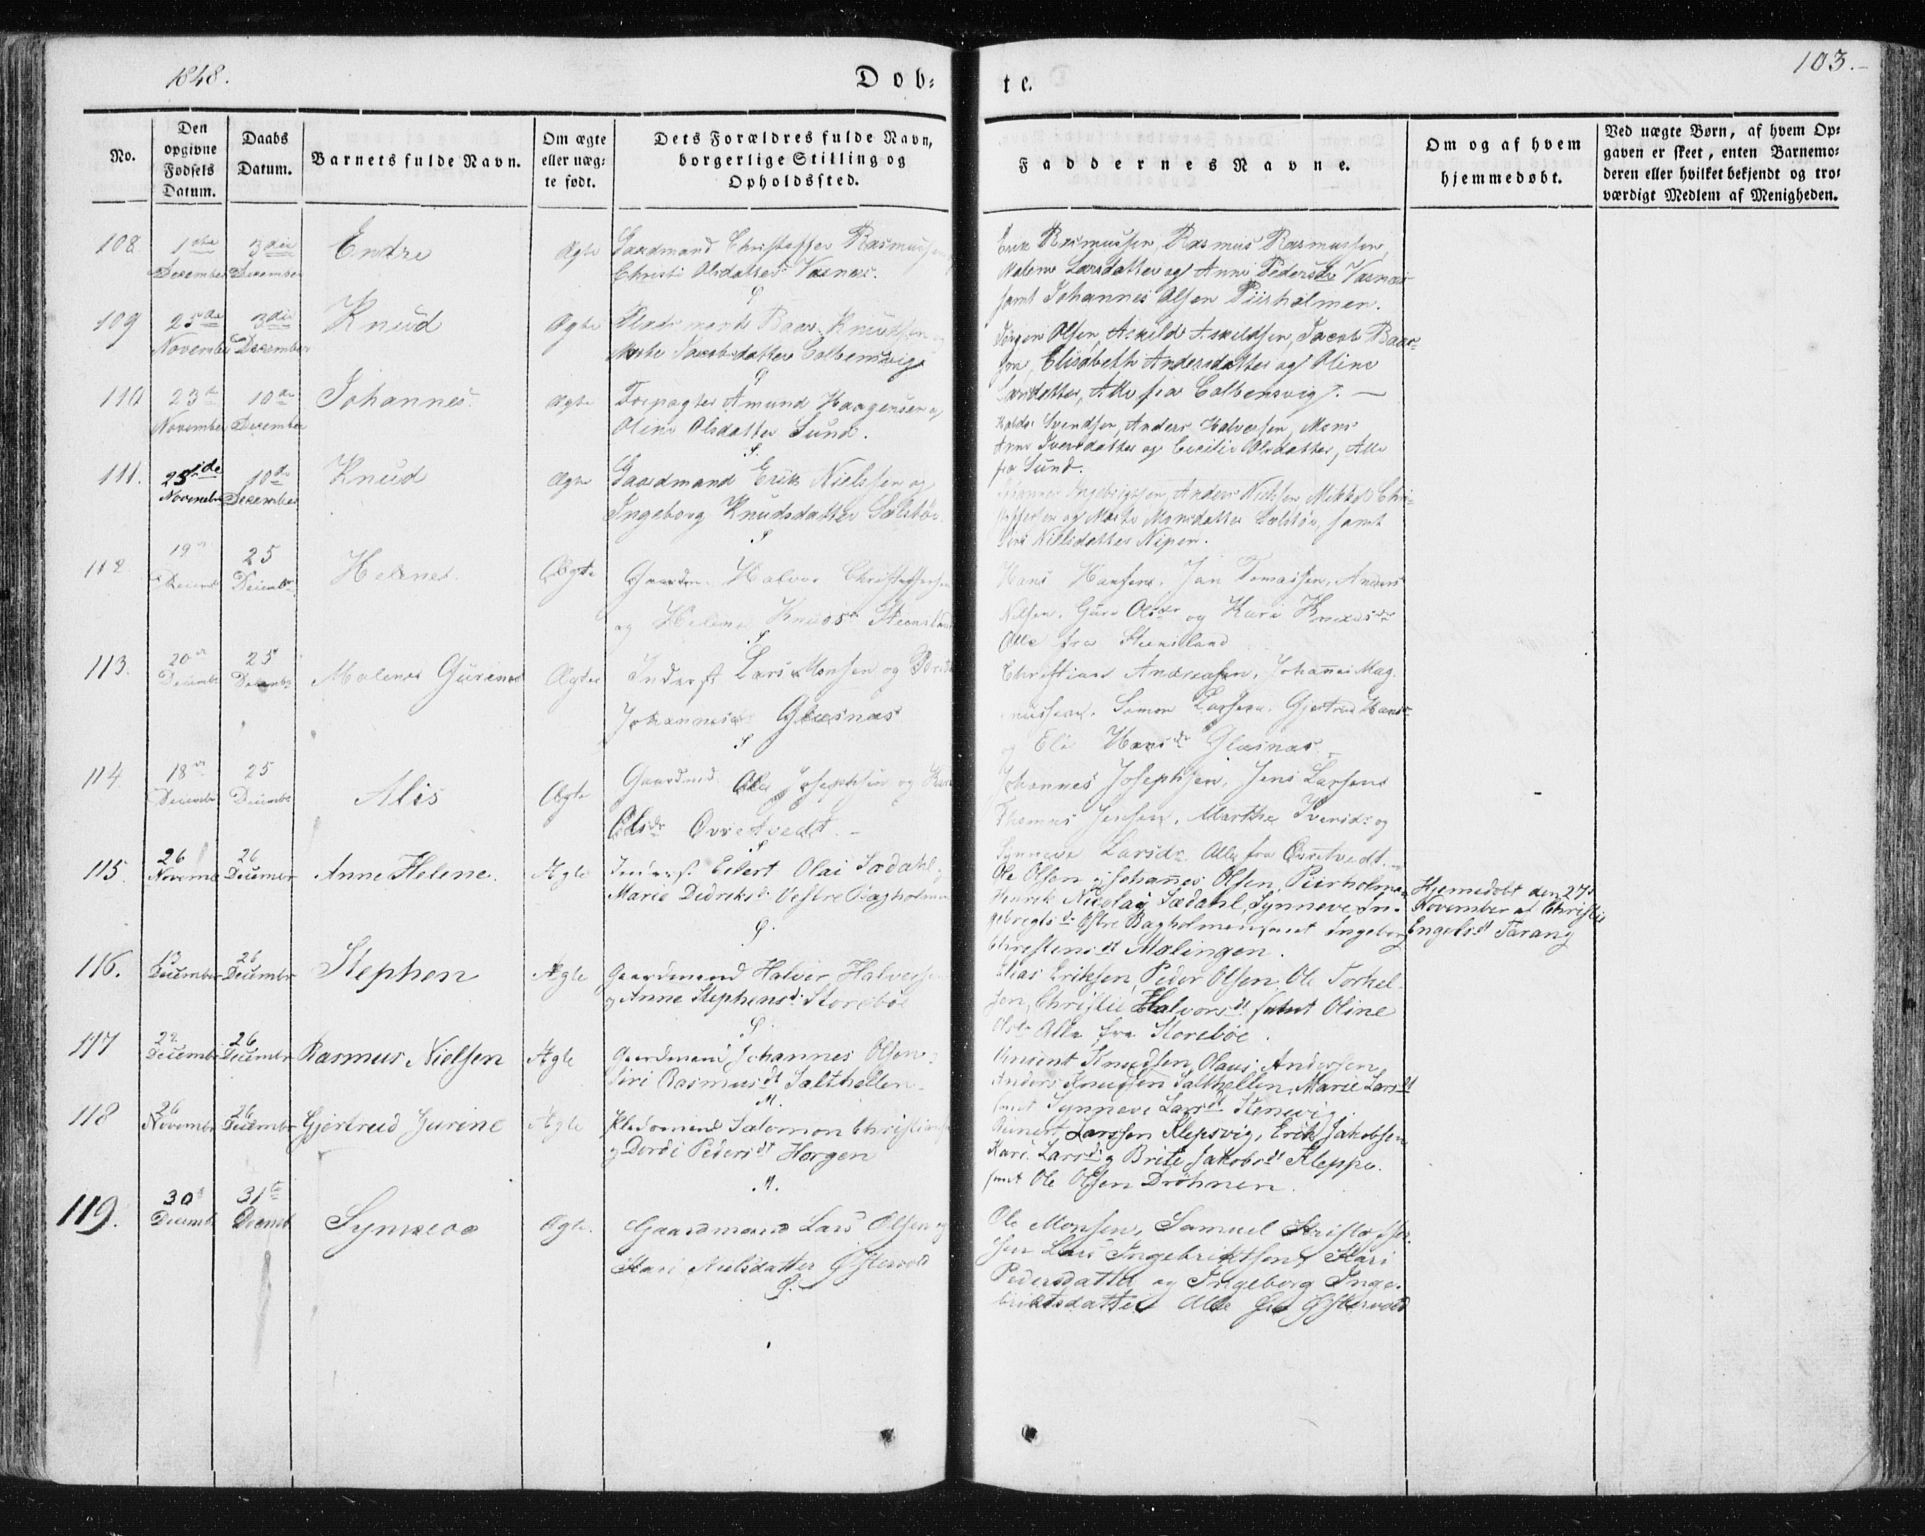 1848.
Dob:
te.
103.
No.
Den opgivne Fødsels Datum.
Daabs Datum.
Barnets fulde Navn.
Om ægte eller uæg: te født.
Dets Forældres fulde Navn, borgerlige Stilling og Opholdssted.
Faddernes Navne.
Om og af hvem hjemmedøbt.
Ved uægte Børn, af hvem Op: gaven er skeet, enten Barnemo: deren eller hvilket bekjendt og tro: værdigt Medlem af Menigheden.
108 1ste December 3die December Endre Ægte Gaardmand Christoffer Rasmussen
Christi Olsdatter Vasnæs.
Erik Rasmussen, Rasmus Rasmussen,
Malene Larsdatter og Anne Vasnæs
samt Johannes Olsen Piirholmen.
109 25de November 3die December Knud Ægte Baar Knudsen og
Marte Jacobsdatter Colbensvig
Jørgen Olsen, Askild Askildsen, Jacob Baar-
sen, Elisabeth Andersdatter og Oline
Larsdatter, Alle fra Colbensvig. —
110 23de November 10de December Johannes Ægte Forpagter Amund Haagensen og
Oline Olsdatter Sund.
Svendsen, Anders Halversen, Mons
Anne Iversdatter og Cecilie Olsdatter, Alle
fra Sund.
111. 25de November 10de December Knud Ægte Gaardmand Erik Nielsen og
Ingeborg Knudsdatter Selstøe
Ingebrigtsen, Anders Nielsen Chri-
stoffersen og Marte Monsdatter Selstøe, samt
Nielsdatter Nipen.
112 19 Decemb 25 Decemb Helene Ægte Halvor Christophersen
og Helene Steensland
Hans Hansen, Jan Tomassen, Anders
Nilsen, Guro Olsdr og Kari Knudsdr
Alle fra Steensland
113. 20 Decembr 25 Decembr Malene Gurine Ægte Inderst Lars Monsen og
Johannesdr Glesnæs
Christian Andreasen, Johannes Mag-
nussen, Simon Larsen, Gjertrud Hansdr
og Eli Hansdr Glesnæs
114 18 Decembr 25 Decembr Alis Ægte Gaardmd Ole Josephsen og
Olsdr Qvretvedt. -
Johannes Josephsen, Jens Larsen
Thomas Jensen, Marthe Iversd: og
Synneve Larsdr Alle fra
115. 26 Novembr 26 Decembr Anne Helene. Ægte Inderst Eilert Olai Sædahl og
Marie Didriksd: Vestre Bagholmen
Ole Olsen og Johannes Olsen Piirholmen
Henrik Nicolay Sædahl, Synneve In-
gebregtsd: Østre Bagholmen samt Ingeborg
Christensdt Møelingen.
Hjemedøbt den 27d
November af Christie
Engelsdt Tarang
116. 25 December 26 Decembr Stephen Ægte Gaardmand Halver Halversen
og Anne Stephensd: Storebøe
Elias Eriksen, Peder Olsen, Ole Torkel-
sen, Christie Halvorsdt samt Oline
Olsdt Alle fra Storebøe.
117 22 Decembr 26 Decembr Rasmus Nielsen Ægte Gaardmand Johannes Olsen og
Siri Rasmusdt Salthellen.
Vincent Knudsen, Olaus Andersen,
Anders Knudsen Salthellen, Marie Larsdt
samt Synneve Larsdt Stenevig.
118 26 Novembr 26 Decembr Gjertrud Jurine Ægte Salomon Christiansen
og Dordi Pedersdt Horgen
Larssen Klepsvig, Erik Jakobsen
Kari Larsdt og Brite Jakobsdt Kleppe.
samt Ole Olsen Drøhnen.
119. 30 Decemb 31te Decemb Synneve Ægte. Gaardmand Lars Olsen og
Kari Nielsdatter Østervold
Ole Monsen, Samuel Kristoffer-
sen Lars Ingebriktsen, Kari
Pedersdatter og Ingeborg Inge-
briktsdatter Alle fra Østervold